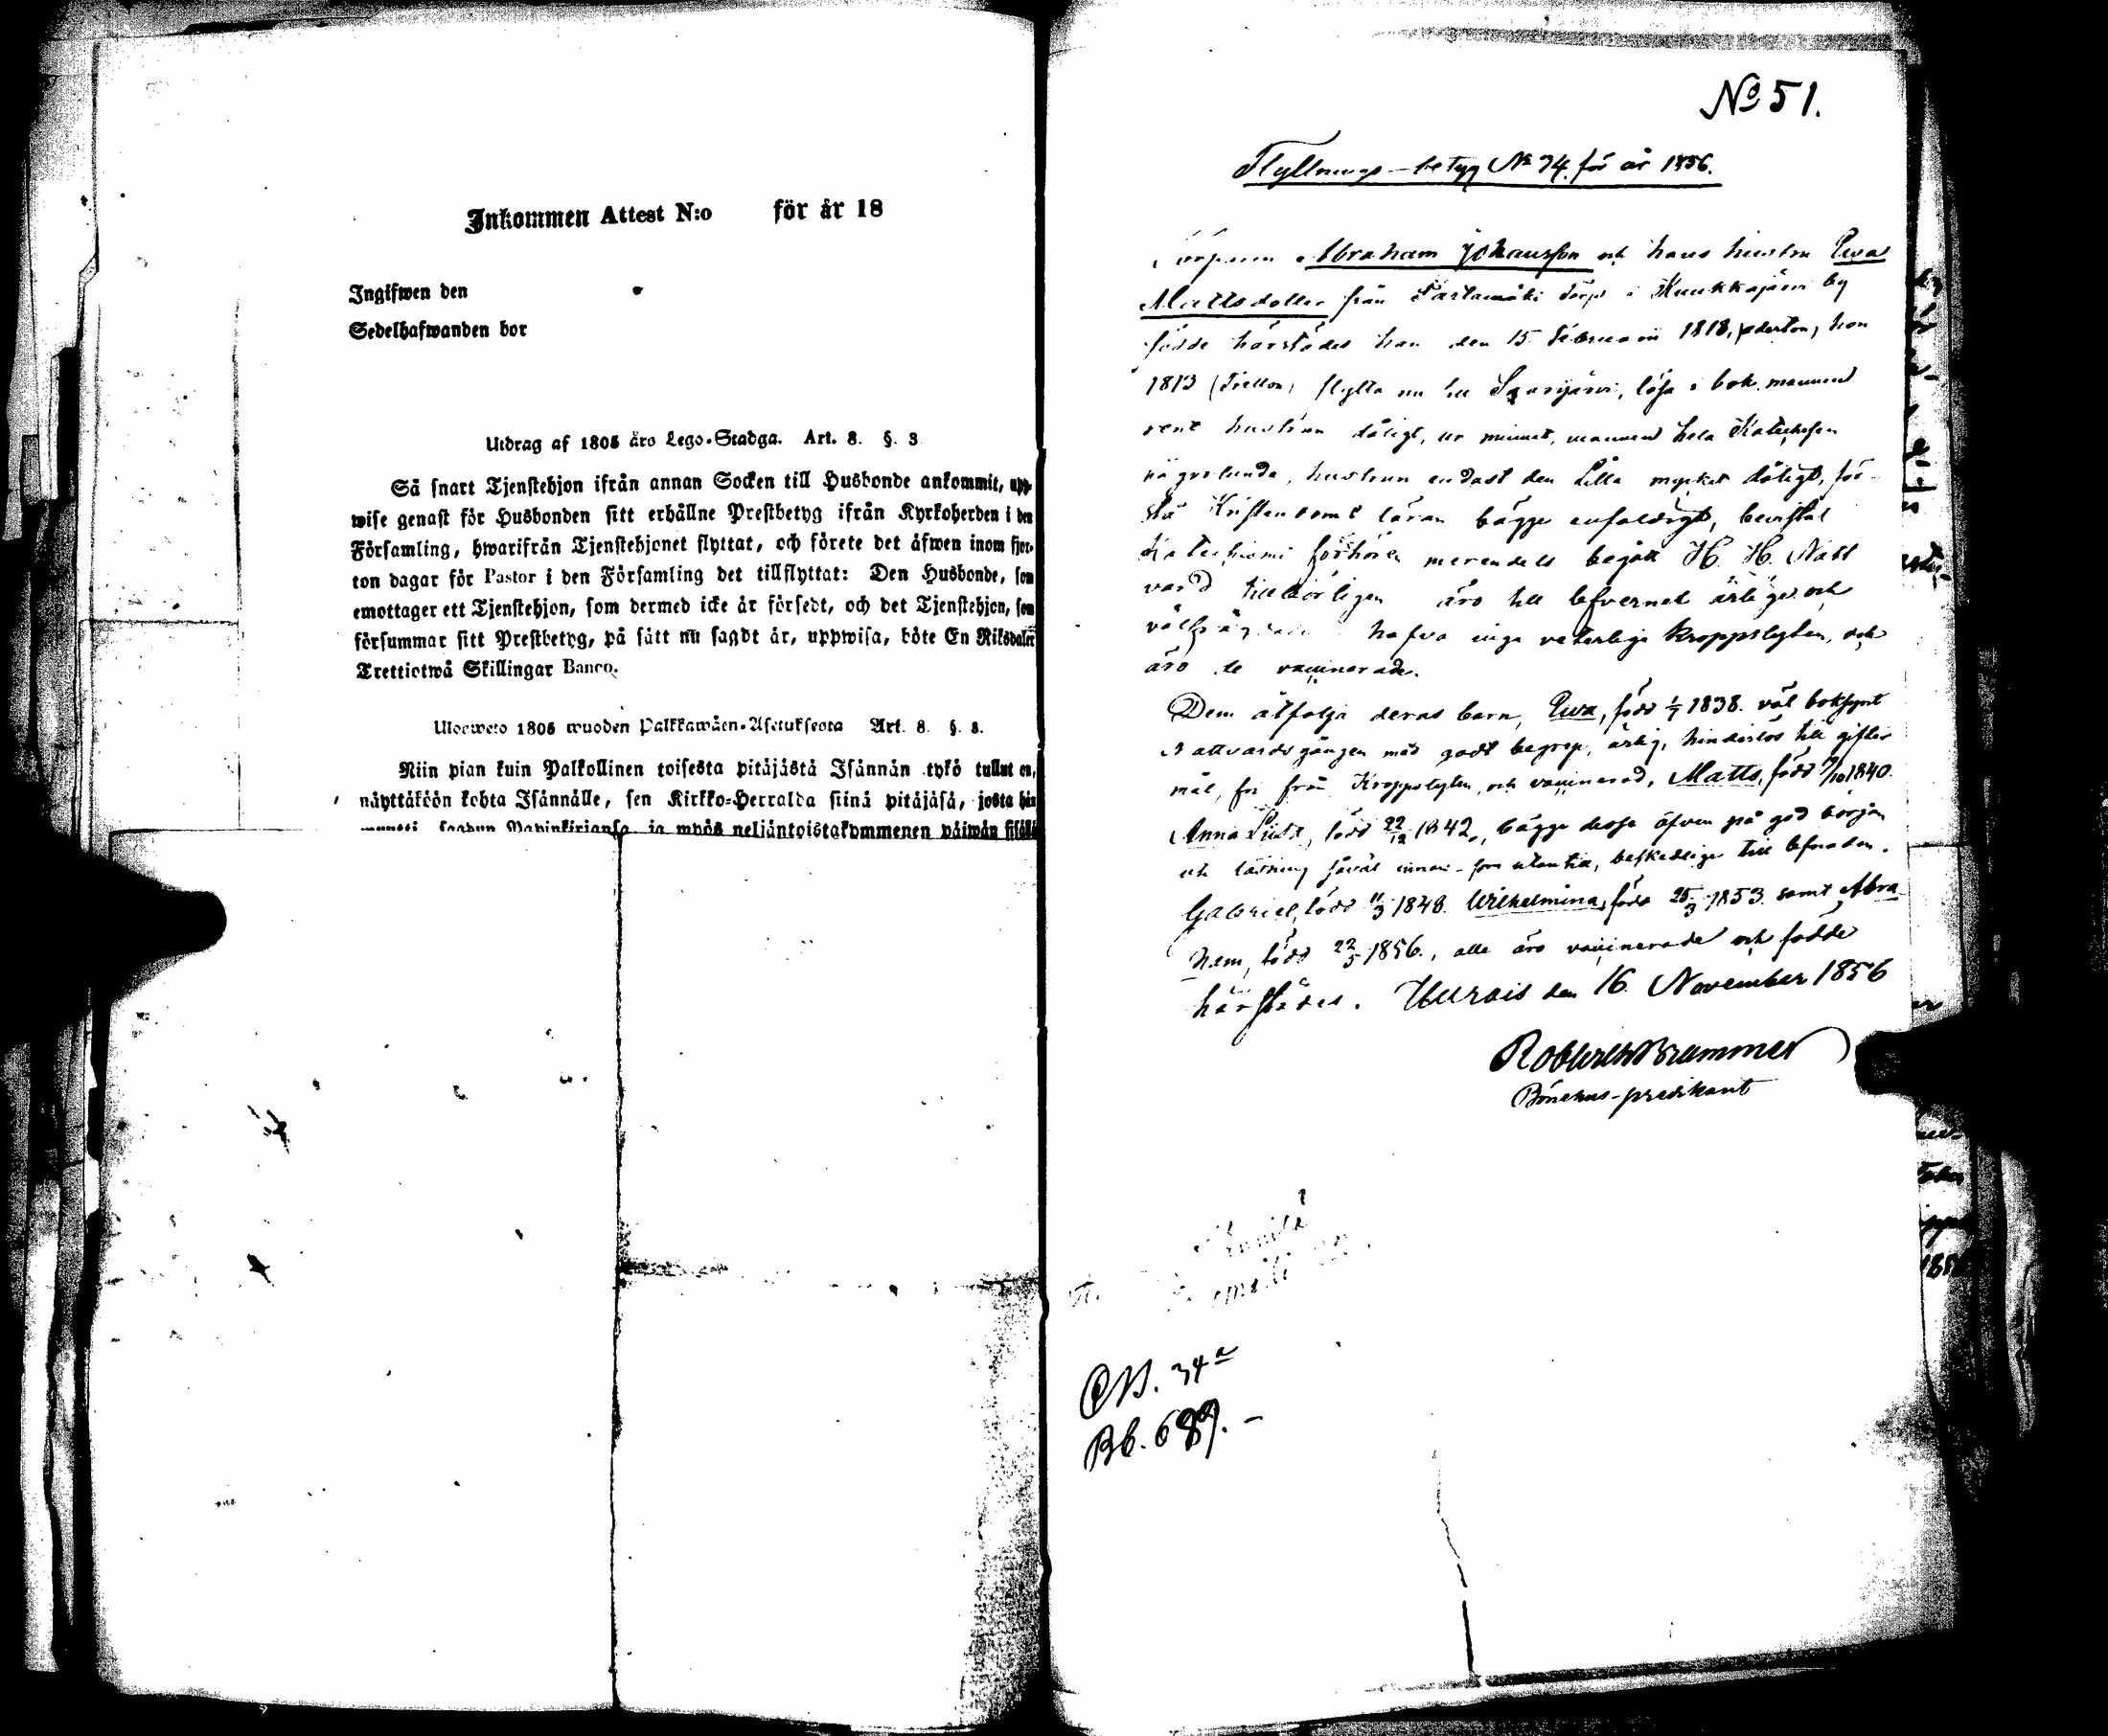 Inkommen Attest N:o för år 18
Ingifwen den
Sedelhafwanden bor
Utdrag af 1805 års Lego-Stadga. Art. 8. §. 3
Så snart Tjenstehjon ifrån annan Socken till Husbonde ankommit, upp-
wise genast för Husbonden sitt erhållne Prestbetyg ifrån Kyrkoherden i den
Församling, hwarifrån Tjenstehjonet flyttat, och förete det äfwen inom fjor-
ton dagar för Pastor i den Församling det tillflyttat: Den Husbonde, som
emottager ett Tjenstehjon, som dermed icke är försedt, och det Tjenstehjon, som
försummar sitt Prestbetyg, på sätt nu sagdt är, uppwisa, böte En Riksdaler
Trettiotwå Skillingar Banco.
Ulosweto 1805 wuoden Palkkawäen-Asetuksesta Art. 8. §. 3.
Niin pian kuin Palkollinen toisesta pitäjästä Isännän tykö tullut on,
näyttäköön kohta Isännälle, sen Kirkko-Herralda siinä pitäjäsä, josta hän
muutti, saadun Papinkirjansa, ja myös neljäntoistakymmenen päiwän sisällä
No 51.
Flyttnings-betyg No 74. för år 1856.
Torparen Abraham Johansson och hans hustru Ewa
Mattsdotter från torp i Kuukkajärvi by
födde härstädes han den 15 Februarii 1818, hon
1813 (Tretton) flytta nu till Saarijärvi, läsa i bok mannen
rent hustrun dåligt, ur minnet, mannen hela Katechesen
någorlunda, hustrun endast den Lilla mycket dåligt, för-
stå Kristendoms läran bägge enfaldigt, bevistat
Katechismi förhören merendels begått H. H. Natt
vard tillbörligen äro till lefvernet ärlige och
hafva inga veterliga kroppslyten, och
äro de vaccinerade.
Dem åtfölja deras barn, Ewa, född 1/7 1838. väl boksynt
Nattvardsgången med godt begrep, ärlig, hinderlös till gifter
mål, fri från Kroppslyten, och vaccinerad, Matts, född 9/10 1840.
Anna Lisa, född 22/12 1842, bägge dessa äfven på god början
och läsning såväl innan- som utantill, beskedlige till lefnaden.
Gabriel, född 11/3 1848. Wilhelmina, född 25/3 1853 samt Abra
ham, född 22/5 1856., alla äro vaccinerade och födde
härstädes. Uurais den 16 November 1856
Robert W Brummer
Bönehus-predikant
34a
Bb. 689.-